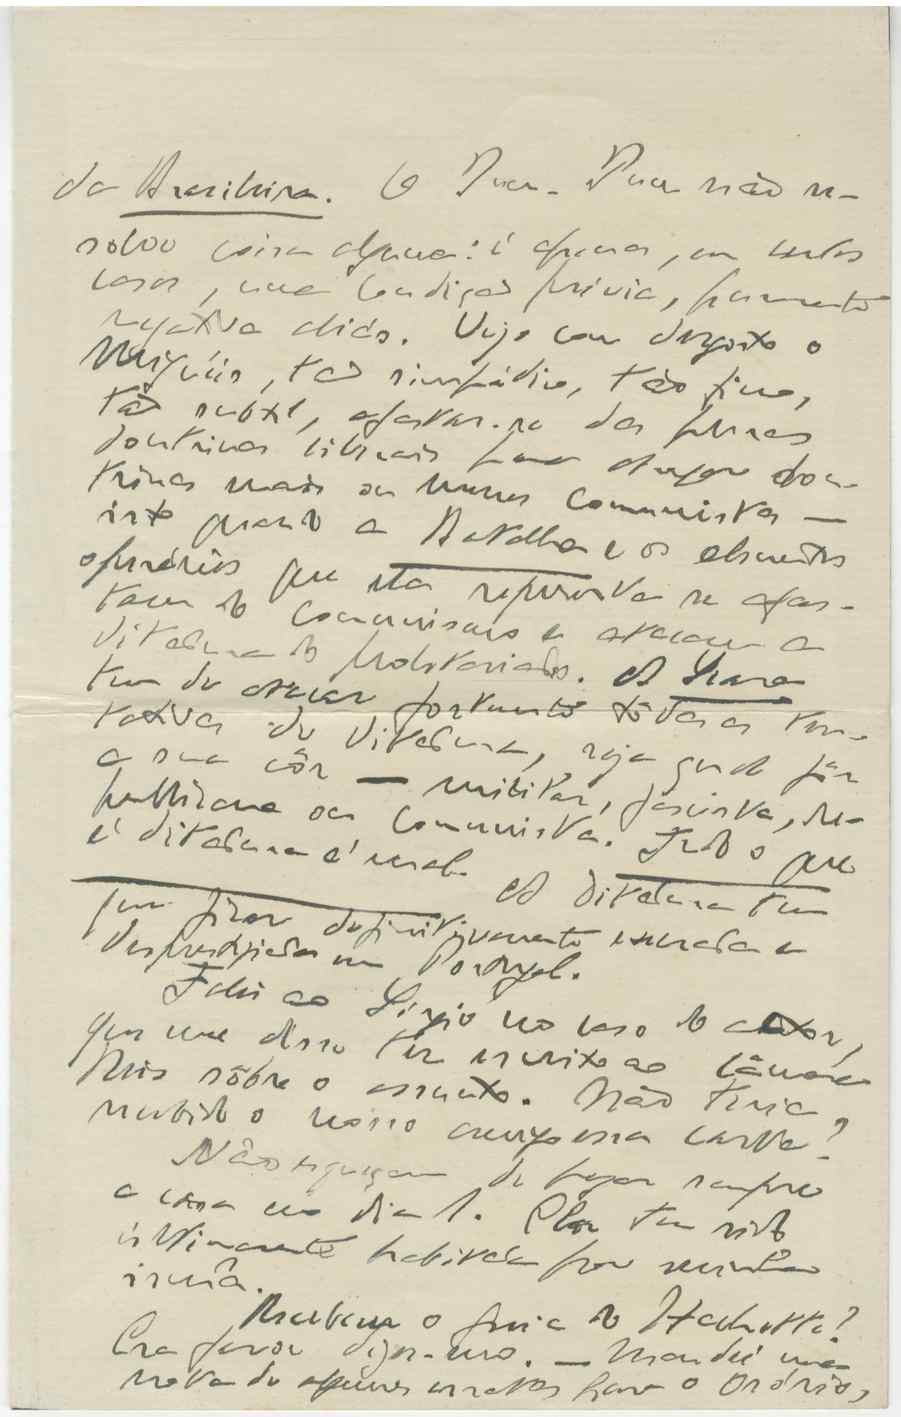 da Brasileira. O Pum-Pum não re-
solve coisa alguma: é apenas, em certos
casos, uma condição prévia, puramente
negativa aliás. Vejo com desgosto o
Migueis, tão simpático, tão fino,
tão subtil, afastar-se das puras
doutrinas liberais para abraçar dou-
trinas mais ou menos communistas —
isto quando a Batalha e os elementos
operários que ela representa se afas-
tam do communismo e atacam a
ditadura do proletariado. A Seara
tem de atacar fortemente tôdas as ten-
tativas de ditadura, seja qual fôr
a sua côr — militar, fascista, re-
publicana ou communista. Tudo o que
é ditadura é mal. A ditadura tem
que ficar definitivamente enterrada e
desprestigiada em Portugal.
Falei ao Sérgio no caso do
que me disse ter escrito ao Câmara
Reis sôbre o assunto. Não teria
recebido o nosso amigo essa carta?
Não esqueçam de pagar sempre
a casa no dia 1. Ela tem sido
ùltimamente habitada por minha
irmã.
Receberam o guia do Hachette?
Era favor dizer-mo. — Mandei uma
nota de algumas erratas para o Osório,